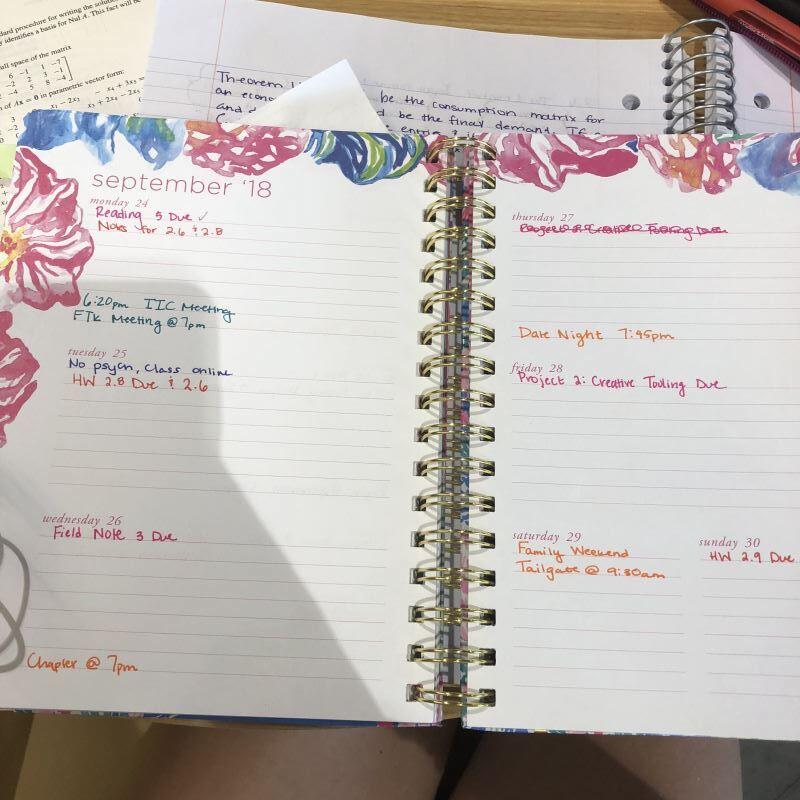 dard procedure for writing the solution
y identifies a basis for Nul A. This fact will be
ull space of the matrix
6 -1 1 -7
-2 2 3 -1
-4 5 8 -4
n of Ax = 0 in parametric vector form:
x1 - 2x2 - x4 + 3x5 =
x3 + 2x4 - 2x5
Theorem
an econo be the consumption matrix for
and be the final demand. If
entries
september '18
monday 24
Reading 5 Due ✓
Notes for 2.6 & 2.8
6:20pm IIC Meeting
FTK Meeting @ 7pm
tuesday 25
No psych, Class online
HW 2.8 Due & 2.6
wednesday 26
Field Note 3 Due
Chapter @ 7pm
thursday 27
Date Night 7:45pm
friday 28
Project 2: Creative Tooling Due
saturday 29
Family Weekend
Tailgate @ 9:30am
sunday 30
HW 2.9 Due